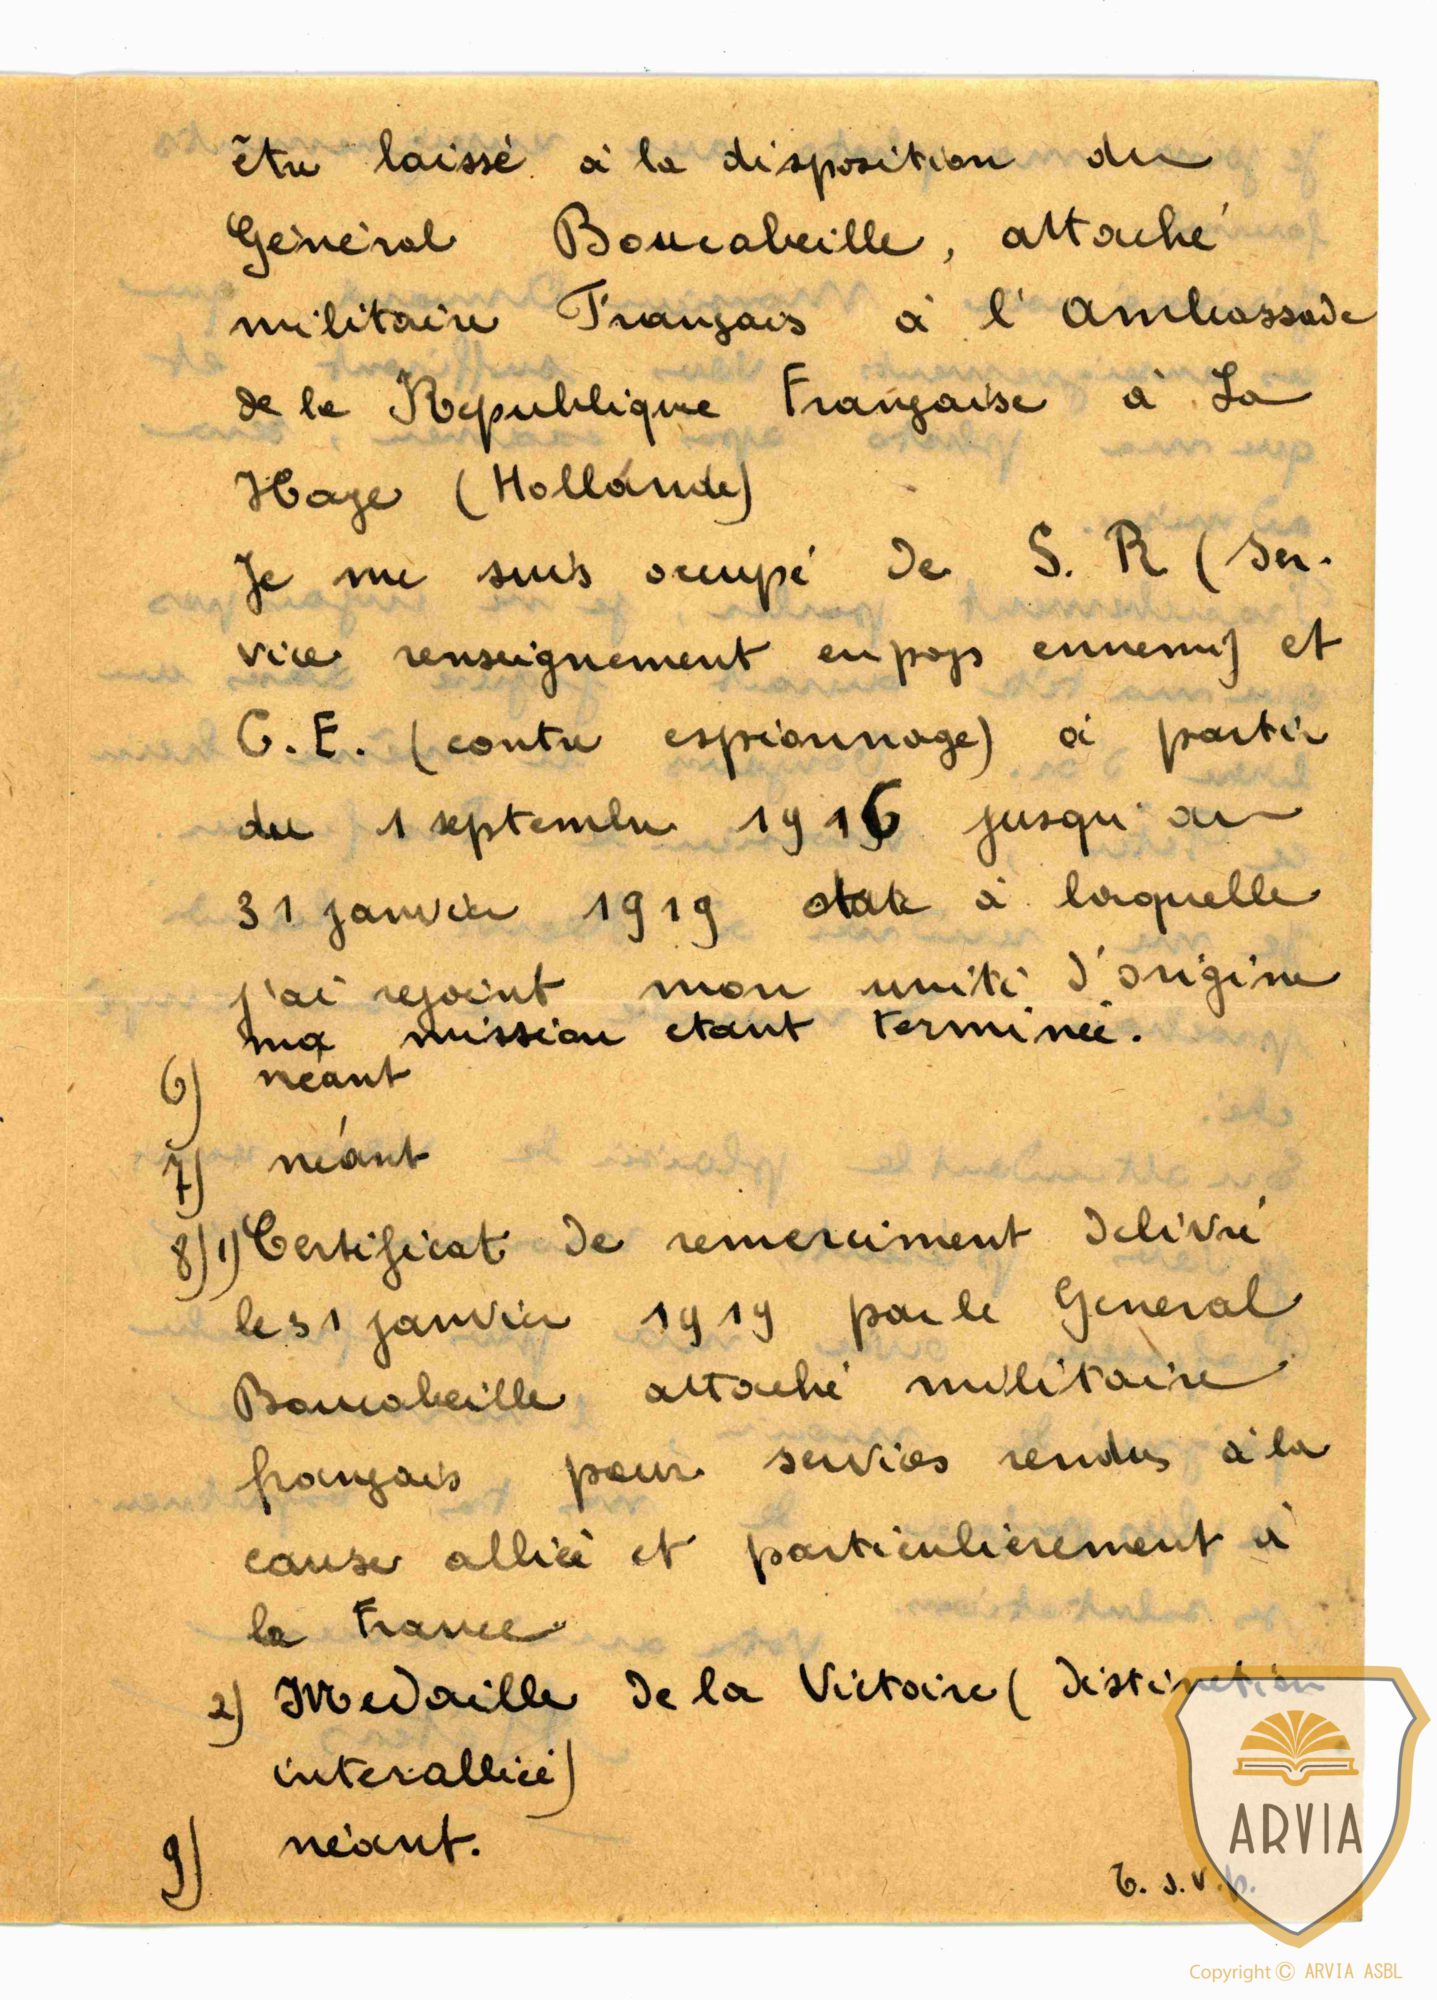 être laissé à la disposition du
Général Boucabeille, attaché
militaire Français à l'Ambassade
de la République Française à La
Haye (Hollande)
Je me suis occupé de S. R (Ser-
vice renseignement en pays ennemi) et
C.E. (contre espionnage) à partir
du 1 septembre 1916 jusqu'au
31 janvier 1919 date à laquelle
j'ai rejoint mon unité d'origine
ma mission etant terminée.
6) néant
7) néant
8) 1) Certificat de remerciment delivré
le 31 janvier 1919 par le General
Boucabeille attaché militaire
français pour services rendus à la
cause alliée et particulièrement à
la France
2) Medaille de la Victoire (distinction
interalliée)
9) néant.
T. s.v.p.
ARVIA
Copyright © ARVIA ASBL